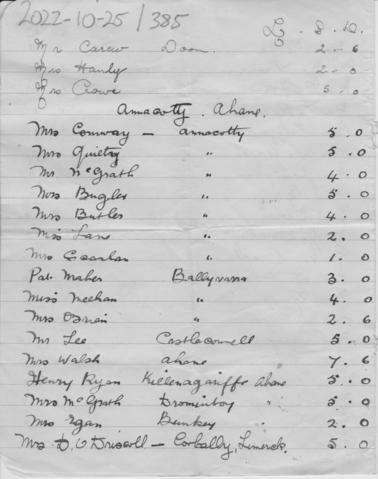 2022-10-25/385
£ . S . D.
Mr Carew Doon. 2 . 6
Mrs Hanly 2 . 0
Mrs Crowe 5 . 0
Annacotty . Ahane.
Mrs Conway — Annacotty 5 . 0
Mrs Quilty " 5 . 0
Mr McGrath " 4 . 0
Mrs Bugler " 5 . 0
Mrs Butler " 4 . 0
Miss Lane " 2 . 0
Mrs " 1 . 0
Pat Maher Ballyvarra 3 . 0
Miss Meehan " 4 . 0
Mrs O'Brien " 2 . 6
Mr Lee Castleconnell 5 . 0
Mrs Walsh Ahane 7 . 6
Henry Ryan Killenagariffe Ahane 5 . 0
Mrs McGrath Drominboy " 5 . 0
Mrs Egan " 2 . 0
Mrs D. O Driscoll — Corbally, Limerick. 5 . 0